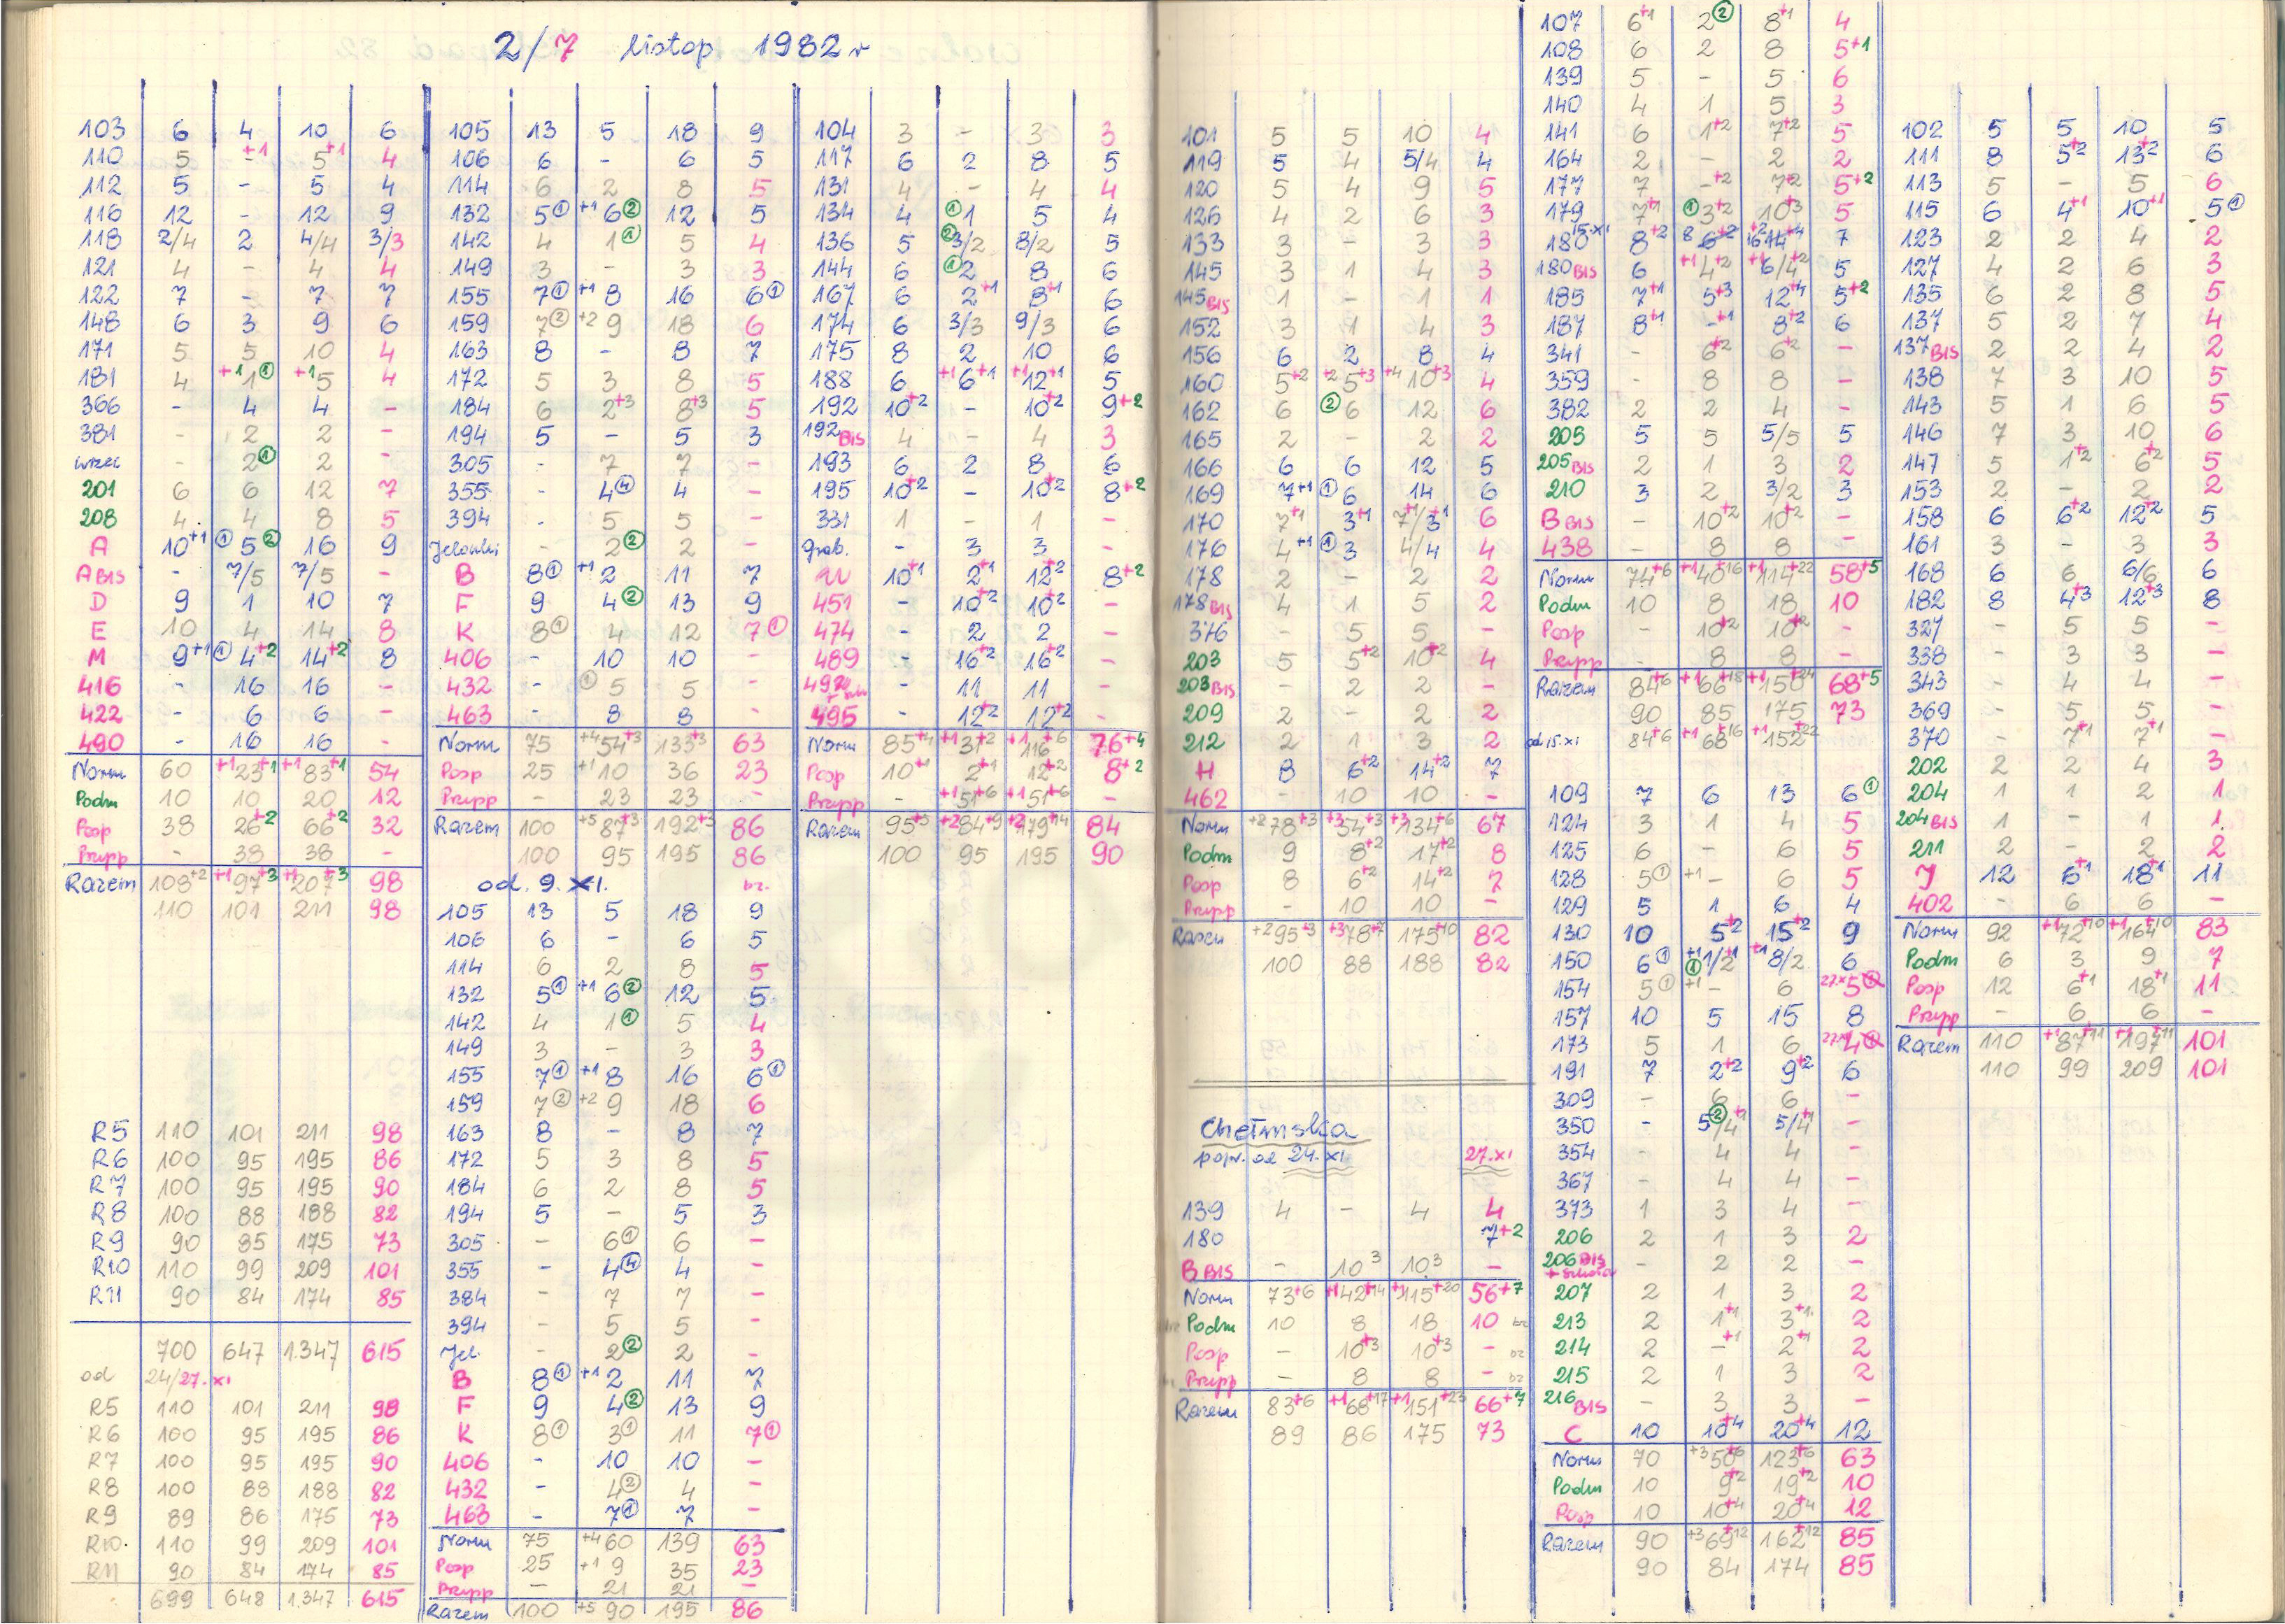 2/7 listop 1982 r
103 6 4 10 6
110 5 -+1 5+1 4
112 5 - 5 4
116 12 - 12 9
118 2/4 2 4/4 3/3
121 4 - 4 4
122 7 - 7 7
148 6 3 9 6
171 5 5 10 4
181 4 +1 1① +1 5 4
366 - 4 4 -
381 - 2 2 -
wrzec - 2① 2 -
201 6 6 12 7
208 4 4 8 5
A 10+1 ①5② 16 9
A BIS - 7/5 7/5 -
D 9 1 10 7
E 10 4 14 8
M 9+1 ①4+2 14+2 8
416 - 16 16 -
422 - 6 6 -
490 - 16 16 -
Norm 60 +1 23+1 +1 83+1 54
Podm 10 10 20 12
Posp 38 26+2 66+2 32
Przysp - 38 38 -
Razem 108+2 +1 97+3 +1 207+3 98
110 101 211 98
R5 110 101 211 98
R6 100 95 195 86
R7 100 95 195 90
R8 100 88 188 82
R9 90 85 175 73
R10 110 99 209 101
R11 90 84 174 85
700 647 1.347 615
od 24/27.XI
R5 110 101 211 98
R6 100 95 195 86
R7 100 95 195 90
R8 100 88 188 82
R9 89 86 175 73
R10 110 99 209 101
R11 90 84 174 85
699 648 1.347 615
105 13 5 18 9
106 6 - 6 5
114 6 2 8 5
132 5① +1 6② 12 5
142 4 1① 5 4
149 3 - 3 3
155 7① +1 8 16 6①
159 7② +2 9 18 6
163 8 - 8 7
172 5 3 8 5
184 6 2+3 8+3 5
194 5 - 5 3
305 - 7 7 -
355 - 4④ 4 -
394 - 5 5 -
Jelonki - 2② 2 -
B 8① +1 2 11 7
F 9 4② 13 9
K 8① 4 12 7①
406 - 10 10 -
432 - ①5 5 -
463 - 8 8 -
Norm 75 +4 54+3 133+3 63
Posp 25 +1 10 36 23
Przysp - 23 23 -
Razem 100 +5 87+3 192+3 86
100 95 195 86
od. 9. XI. bz.
105 13 5 18 9
106 6 - 6 5
114 6 2 8 5
132 5① +1 6② 12 5
142 4 1① 5 4
149 3 - 3 3
155 7① +1 8 16 6①
159 7② +2 9 18 6
163 8 - 8 7
172 5 3 8 5
184 6 2 8 5
194 5 - 5 3
305 - 6① 6 -
355 - 4④ 4 -
384 - 7 7 -
394 - 5 5 -
Jel. - 2② 2 -
B 8① +1 2 11 7
F 9 4② 13 9
K 8① 3① 11 7①
406 - 10 10 -
432 - 4② 4 -
463 - 7① 7 -
Norm 75 +4 60 139 63
Posp 25 +1 9 35 23
Przysp - 21 21 -
Razem 100 +5 90 195 86
104 3 - 3 3
117 6 2 8 5
131 4 - 4 4
134 4 ①1 5 4
136 5 ②3/2 8/2 5
144 6 ①2 8 6
167 6 2+1 8+1 6
174 6 3/3 9/3 6
175 8 2 10 6
188 6 +1 6+1 +1 12+1 5
192 10+2 - 10+2 9+2
192 BIS 4 - 4 3
193 6 2 8 6
195 10+2 - 10+2 8+2
331 1 - 1 -
grab. - 3 3 -
10+1 2+1 12+2 8+2
451 - 10+2 10+2 -
474 - 2 2 -
489 - 16+2 16+2 -
492 - 11 11 -
495 - 12+2 12+2 -
Norm 85+4 +1 31+2 +1 116+6 76+4
Posp 10+1 2+1 12+2 8+2
Przysp - +1 51+6 +1 51+6 -
Razem 95+5 +2 84+9 +2 179+14 84
100 95 195 90
101 5 5 10 4
119 5 4 5/4 4
120 5 4 9 5
126 4 2 6 3
133 3 - 3 3
145 3 1 4 3
145 BIS 1 - 1 1
152 3 1 4 3
156 6 2 8 4
160 5+2 +2 5+3 +4 10+3 4
162 6 ②6 12 6
165 2 - 2 2
166 6 6 12 5
169 7+1 ①6 14 6
170 7+1 3+1 7+1/3+1 6
176 4+1 ①3 4/4 4
178 2 - 2 2
178 BIS 4 1 5 2
376 - 5 5 -
203 5 5+2 10+2 4
203 BIS - 2 2 -
209 2 - 2 2
212 2 1 3 2
H 8 6+2 14+2 7
462 - 10 10 -
Norm +2 78+3 +3 54+3 +3 134+6 67
Podm 9 8+2 17+2 8
Posp 8 6+2 14+2 7
Przysp - 10 10 -
Razem +2 95+3 +3 78+7 175+10 82
100 88 188 82
Chełmska
popr. od 24.XI 27.XI
139 4 - 4 4
180 7+2
B BIS - 10 3 10 3 -
Norm 73+6 +1 42+14 +1 115+20 56+7
Podm 10 8 18 10 bz
Posp - 10+3 10+3 - bz
Przysp - 8 8 - bz
Razem 83+6 +1 68+17 +1 151+23 66+7
89 86 175 73
107 6+1 2② 8+1 4
108 6 2 8 5+1
139 5 - 5 6
140 4 1 5 3
141 6 1+2 7+2 5
164 2 - 2 2
177 7 -+2 7+2 5+2
179 7+1 ①3+2 10+3 5
180 15.XI 8+2 8 6+2 16+2 14+4 7
180 BIS 6 +1 4+2 +1 6/4+2 5
185 7+1 5+3 12+4 5+2
187 8+1 -+1 8+2 6
341 - 6+2 6+2 -
359 - 8 8 -
382 2 2 4 -
205 5 5 5/5 5
205 BIS 2 1 3 2
210 3 2 3/2 3
B BIS - 10+2 10+2 -
438 - 8 8 -
Norm 74+6 +1 40+16 +1 114+22 58+5
Podm 10 8 18 10
Posp - 10+2 10+2 -
Przysp - 8 8 -
Razem 84+6 +1 66+18 +1 150+24 68+5
90 85 175 73
od 15.XI 84+6 +1 68+16 +1 152+22
109 7 6 13 6①
124 3 1 4 5
125 6 - 6 5
128 5① +1 - 6 5
129 5 1 6 4
130 10 5+2 15+2 9
150 6① +1 ①1/2+1 +1 8/2 6
154 5① +1 - 6 27.XI 5
157 10 5 15 8
173 5 1 6 27.XI 4
191 7 2+2 9+2 6
309 - 6 6 -
350 - 5②/4+1 5/4+1 -
354 - 4 4 -
367 - 4 4 -
373 1 3 4 -
206 2 1 3 2
206 BIS - 2 2 -
207 2 1 3 2
213 2 1+1 3+1 2
214 2 -+1 2+1 2
215 2 1 3 2
216 BIS - 3 3 -
C 10 10+4 20+4 12
Norm 70 +3 50+6 123+6 63
Podm 10 9+2 19+2 10
Posp 10 10+4 20+4 12
Razem 90 +3 69+12 162+12 85
90 84 174 85
102 5 5 10 5
111 8 5+2 13+2 6
113 5 - 5 6
115 6 4+1 10+1 5①
123 2 2 4 2
127 4 2 6 3
135 6 2 8 5
137 5 2 7 4
137 BIS 2 2 4 2
138 7 3 10 5
143 5 1 6 5
146 7 3 10 6
147 5 1+2 6+2 5
153 2 - 2 2
158 6 6+2 12+2 5
161 3 - 3 3
168 6 6 6/6 6
182 8 4+3 12+3 8
327 - 5 5 -
338 - 3 3 -
343 - 4 4 -
369 - 5 5 -
370 - 7+1 7+1 -
202 2 2 4 3
204 1 1 2 1
204 BIS 1 - 1 1
211 2 - 2 2
J 12 6+1 18+1 11
402 - 6 6 -
Norm 92 +1 72+10 +1 164+10 83
Podm 6 3 9 7
Posp 12 6+1 18+1 11
Przysp - 6 6 -
Razem 110 +1 87+11 +1 197+11 101
110 99 209 101